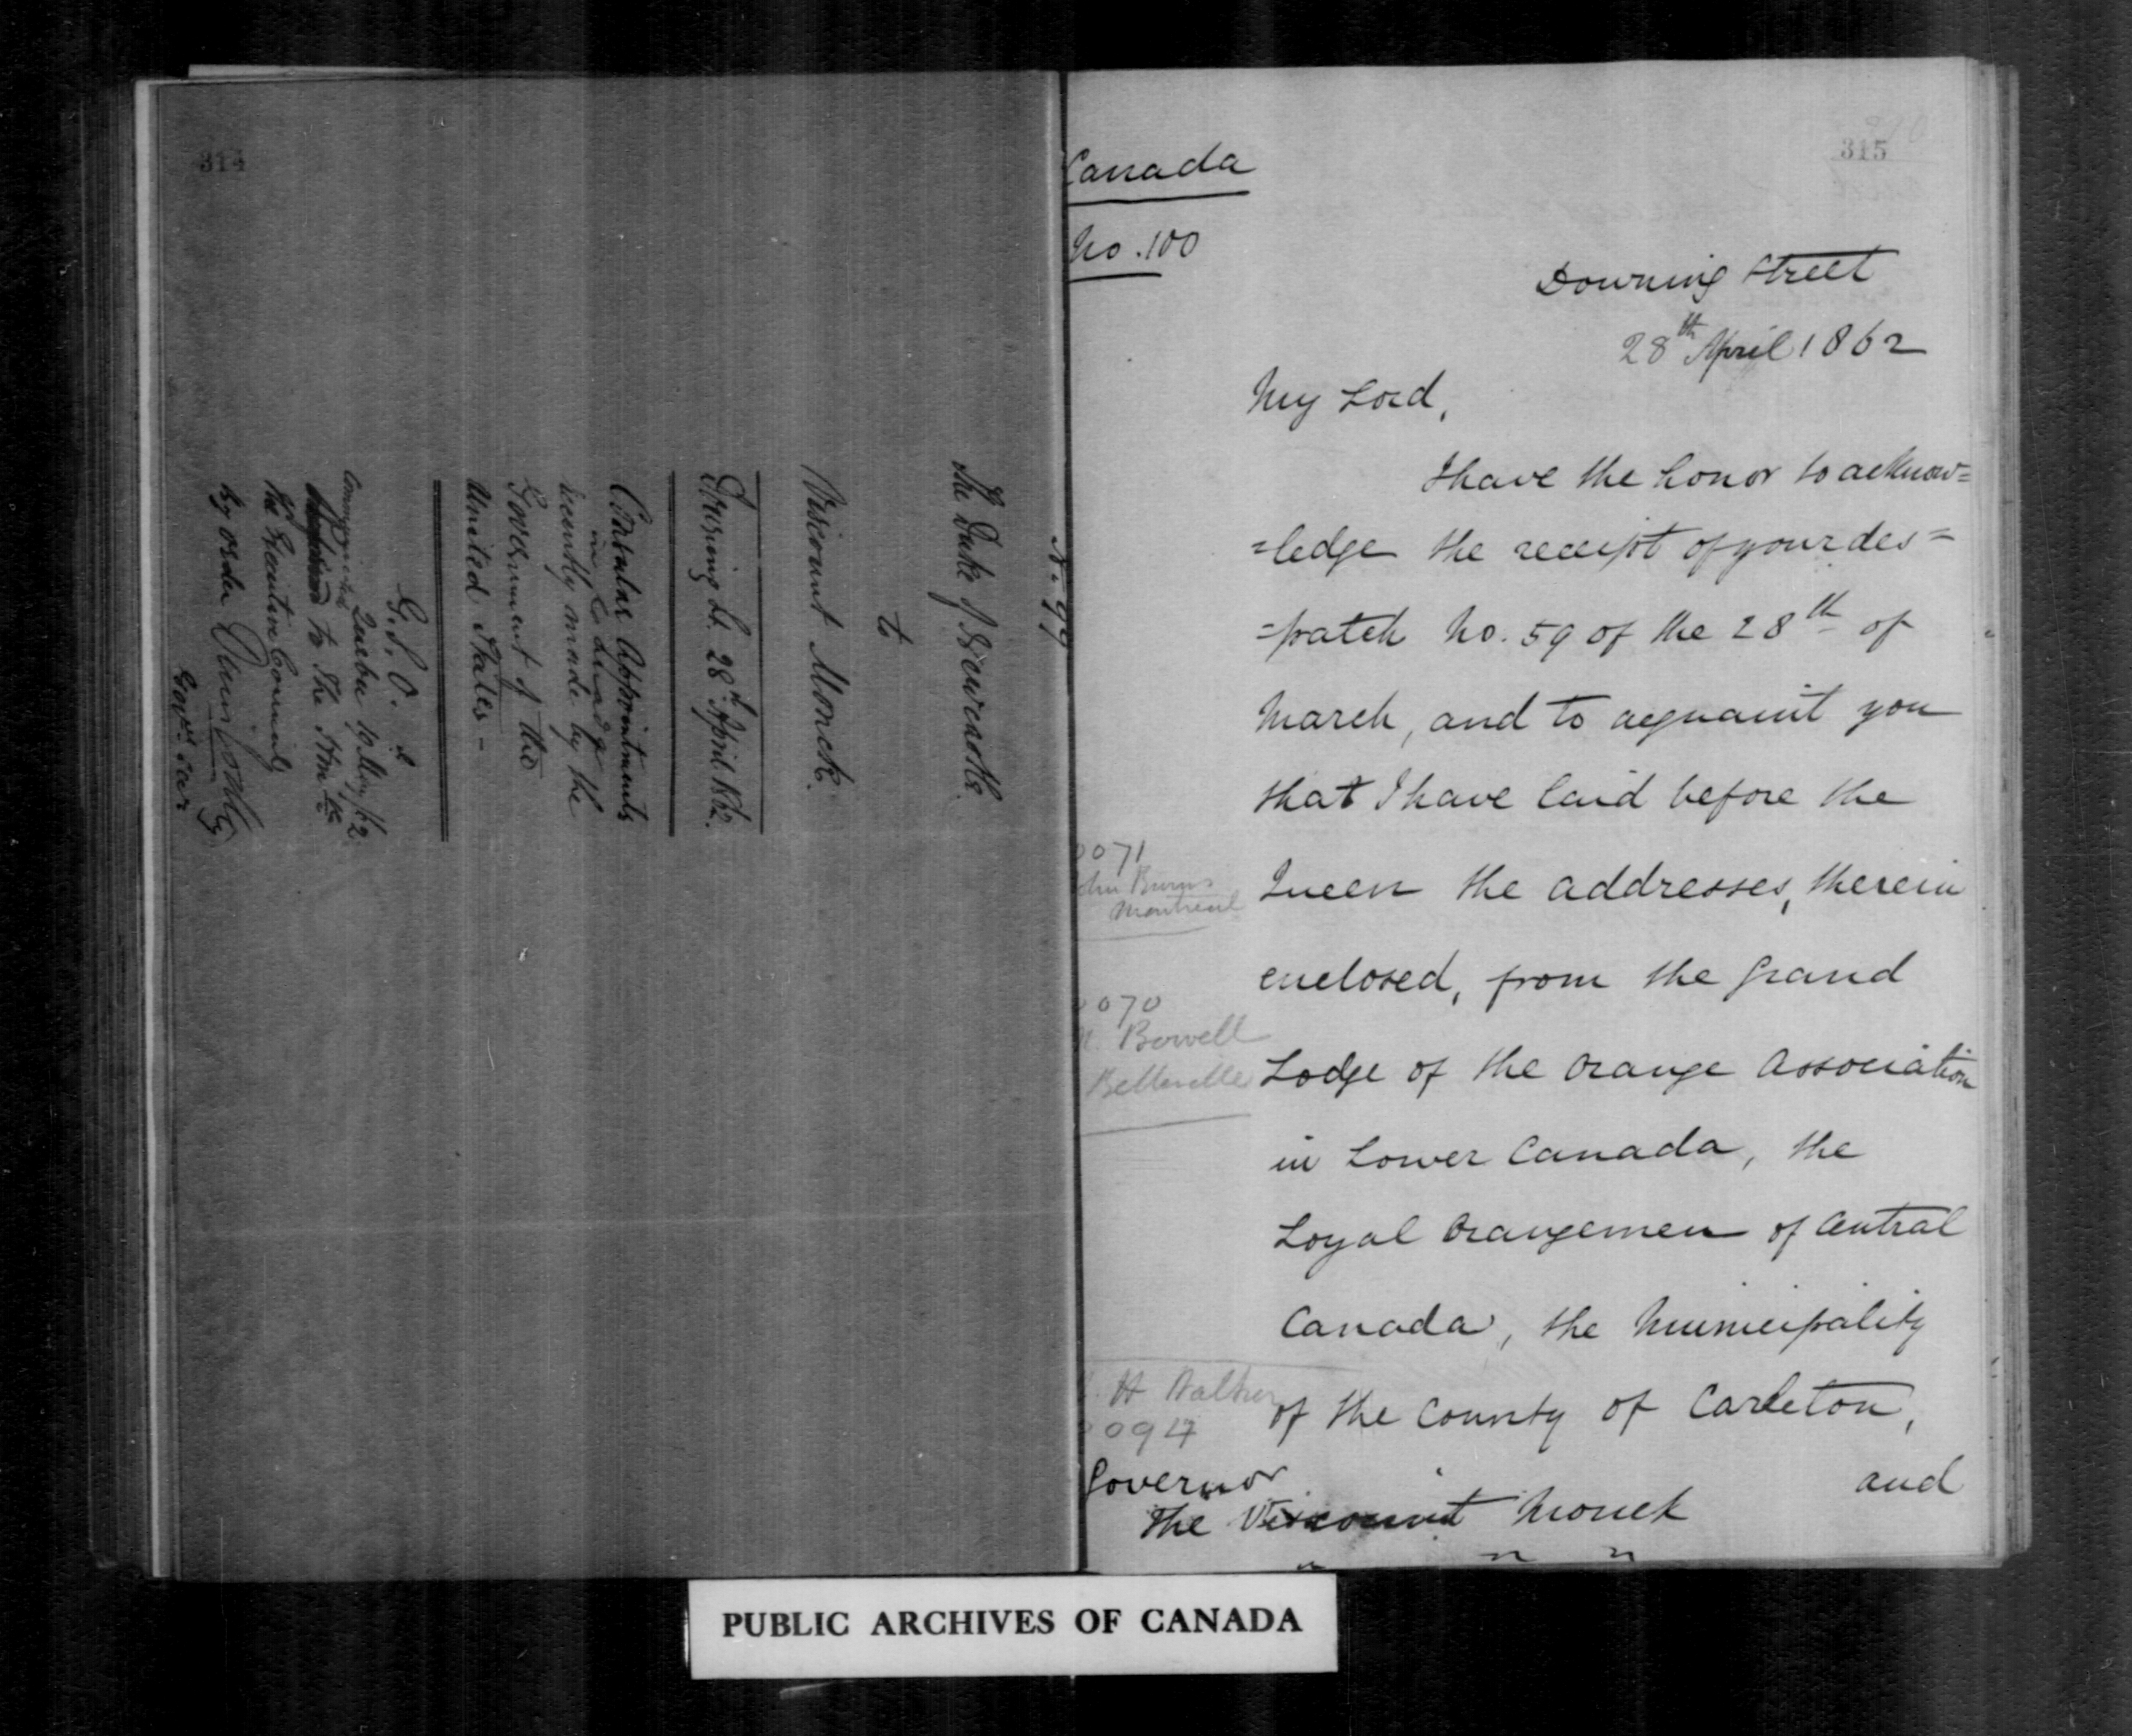 314
N. 99
The Duke of Newcastle
to
Viscount Monck.
Downing St. 28th April 1862.
Consular Appointments
in Canada
recently made by the
Government of the
United States -
G.S.O.
Quebec 10 May /62
to the Hon
the Executive Council
by order
Govrs Secy
315
Canada
No. 100
Downing Street
28th April 1862
My Lord,
I have the honor to acknow=
=ledge the receipt of your des=
=patch No. 59 of the 28th of
March, and to acquaint you
that I have laid before the
071
John Burns
Montreal
Queen the addresses, therein
enclosed, from the Grand
070
Bowell
Belleville
Lodge of the Orange Association
in Lower Canada, the
Loyal Orangemen of Central
Canada, the Municipality
H
094
of the County of Carleton,
and
Governor
The Viscount Monck
PUBLIC ARCHIVES OF CANADA